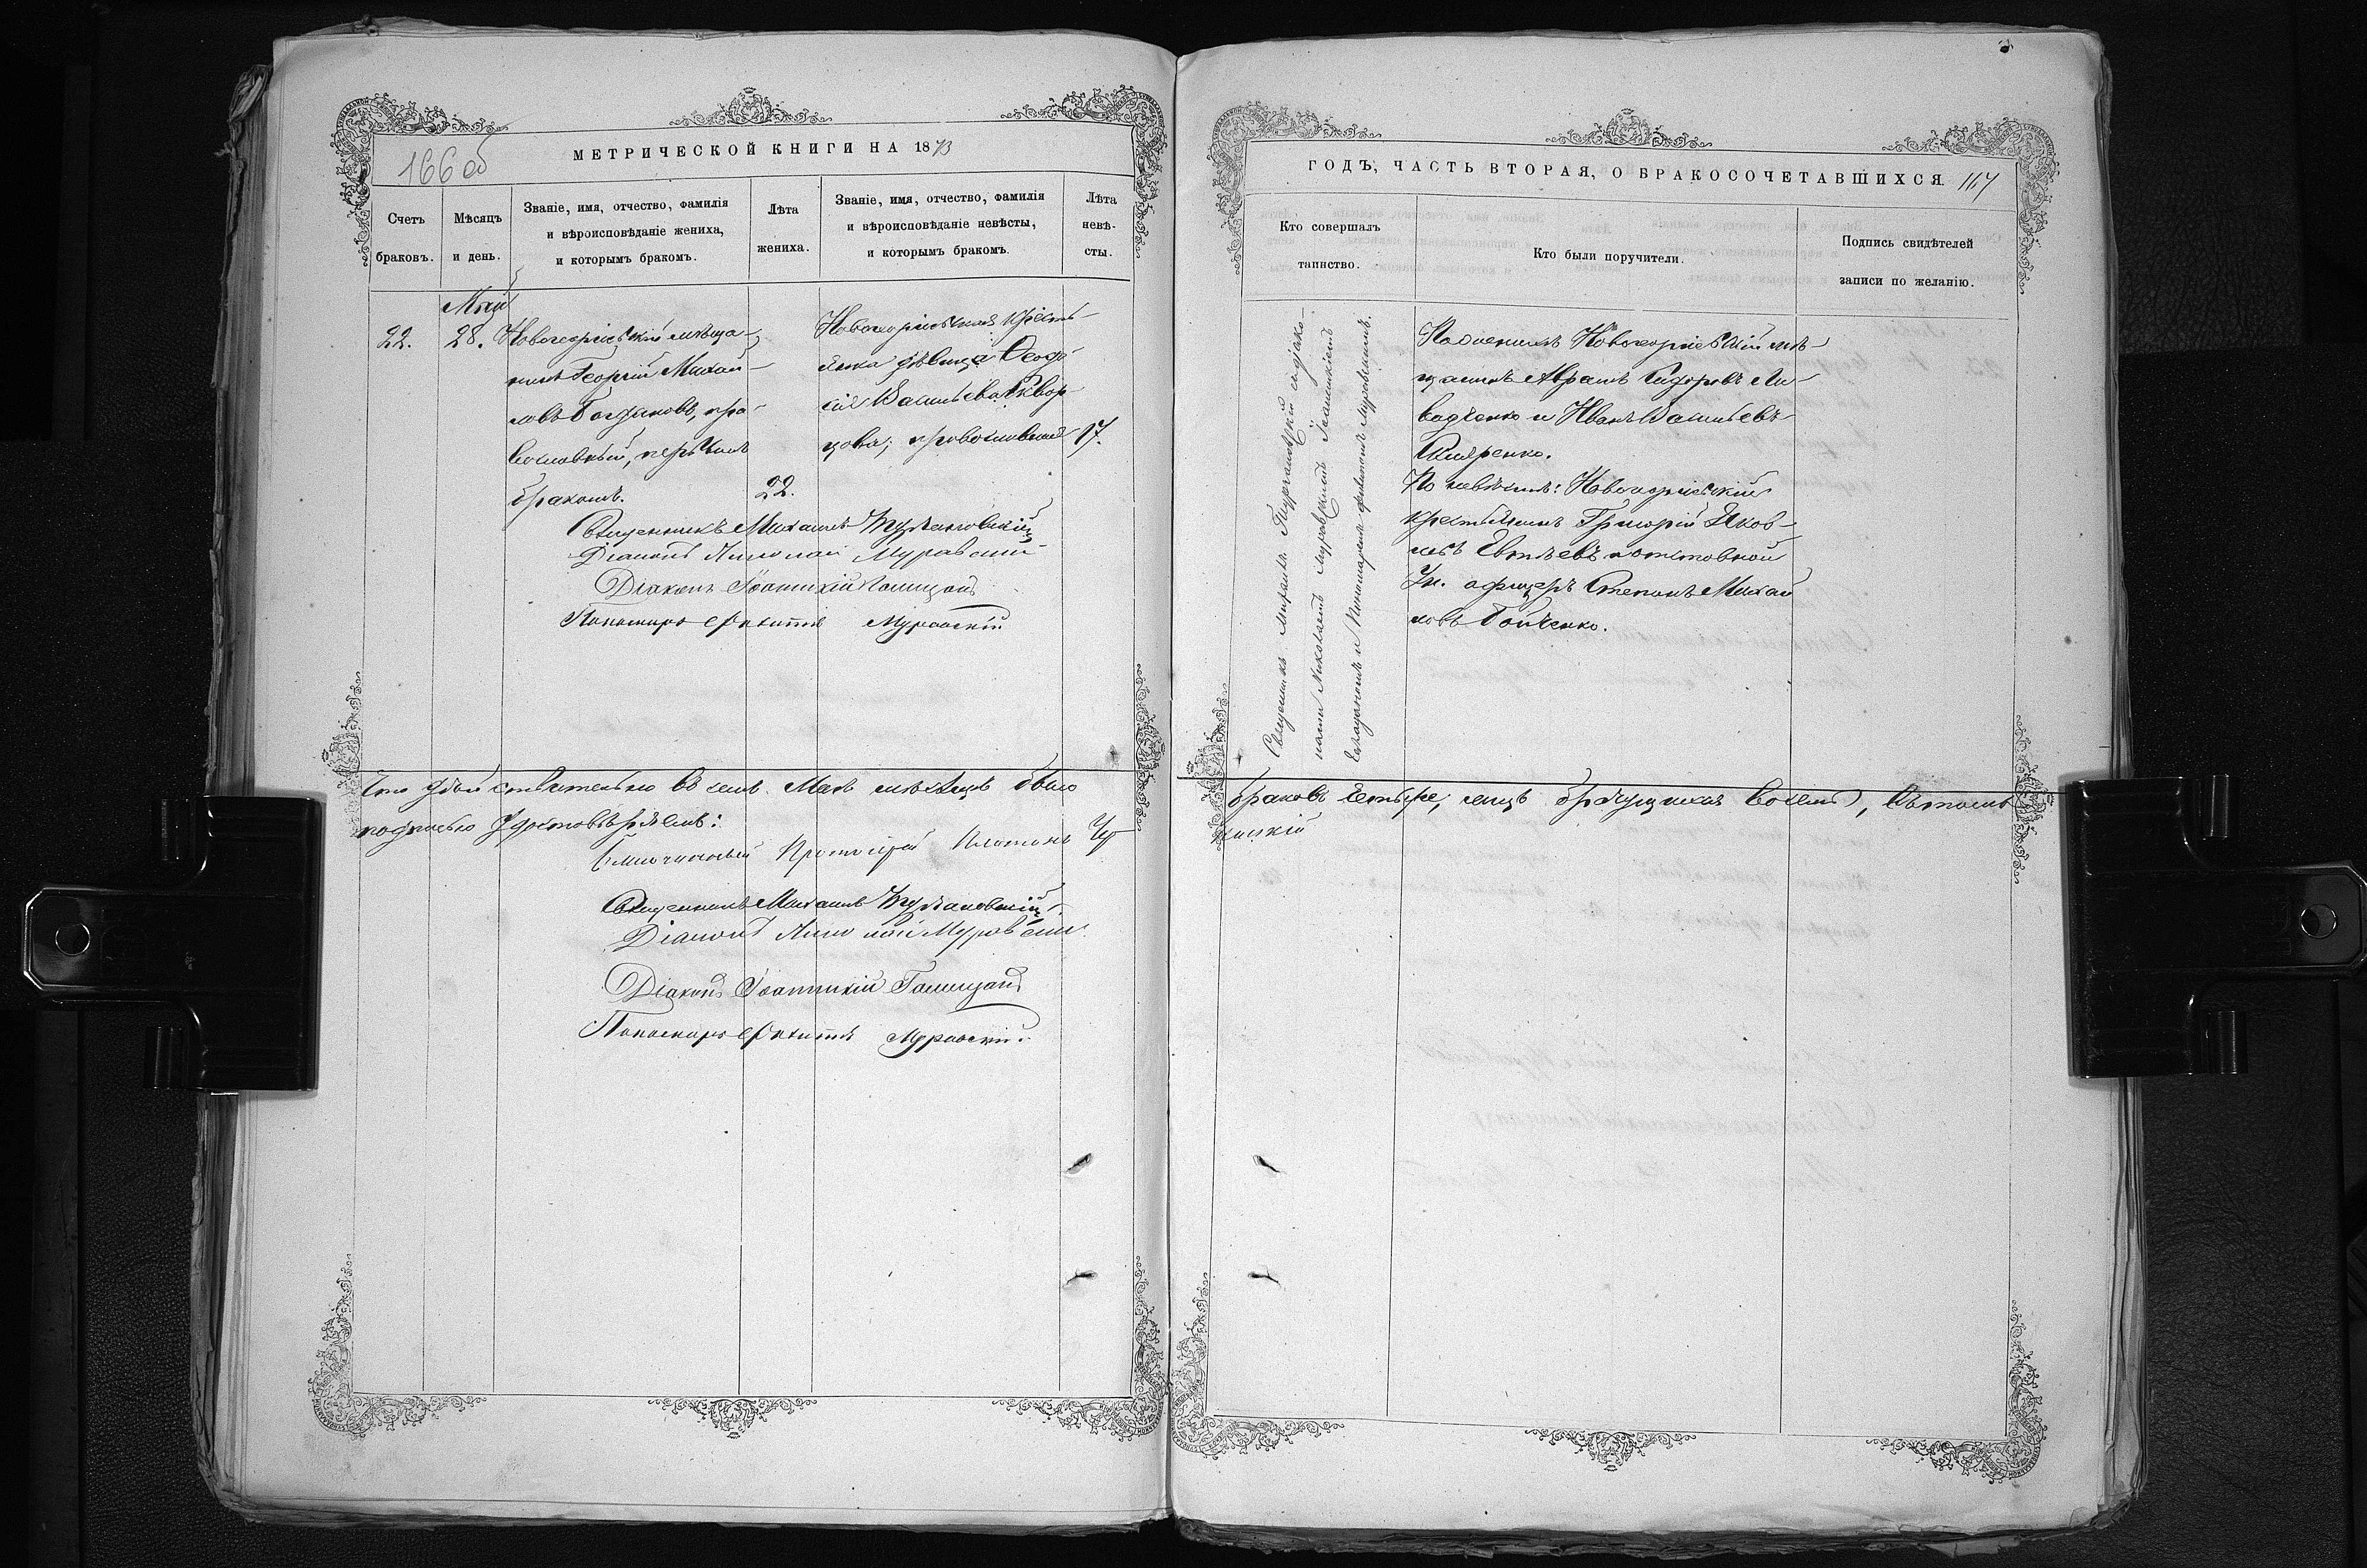 166 об
МЕТРИЧЕСКОЙ КНИГИ НА 1873
Счетъ браковъ.
Мѣсяцъ и день.
Званіе, имя, отчество, фамилія
и вѣроисповѣданіе жениха,
и которымъ бракомъ.
Лѣта
жениха.
Званіе, имя, отчество, фамилія
и вѣроисповѣданіе невѣсты,
и которымъ бракомъ.
Лѣта
невѣ-
сты.
22.
Май
28.
Новогеоргіевскій мѣща-
нинъ Георгій Михай-
ловъ Богдановъ, пра-
вославный, первымъ
бракомъ.
22.
Новогеоргіевская кресть-
янка дѣвица Ѳеодо-
сія Васильева Сквор-
цова; православная
17.
Священникъ Михаилъ
Діаконъ Николай Муравскій
Діаконъ Іоанникій Голицанъ
Пономарь Филиппъ Муравскій
Что дѣйствительно въ семъ Маѣ мѣсяцѣ было
подписью удостовѣряемъ:
Протоіерей Платонъ
Священникъ Михаилъ
Діаконъ Николай Муравскій
Діаконъ Іоанникій Голицанъ
Пономарь Филиппъ Муравскій
ГОДЪ, ЧАСТЬ ВТОРАЯ, О БРАКОСОЧЕТАВШИХСЯ. 167
Кто совершалъ
таинство.
Кто были поручители.
Подпись свидѣтелей
записи по желанію.
Священникъ Михаилъ съ діако-
нами Николаемъ Муравскимъ Іоанникіемъ
и Пономаремъ Филиппомъ Муравскимъ.
По женихѣ Новогеоргіевскій мѣ-
щанинъ Аврамъ Сидоровъ Ли-
вадченко и Иванъ Васильевъ
Скляренко.
По невѣстѣ: Новогеоргіевскій
крестьянинъ Григорій Яков-
левъ Евтѣевъ и отставной
Ун. офицеръ Степанъ Михай
ловъ Бойченко.
браковъ четыре, лицъ брачущихся восемь,